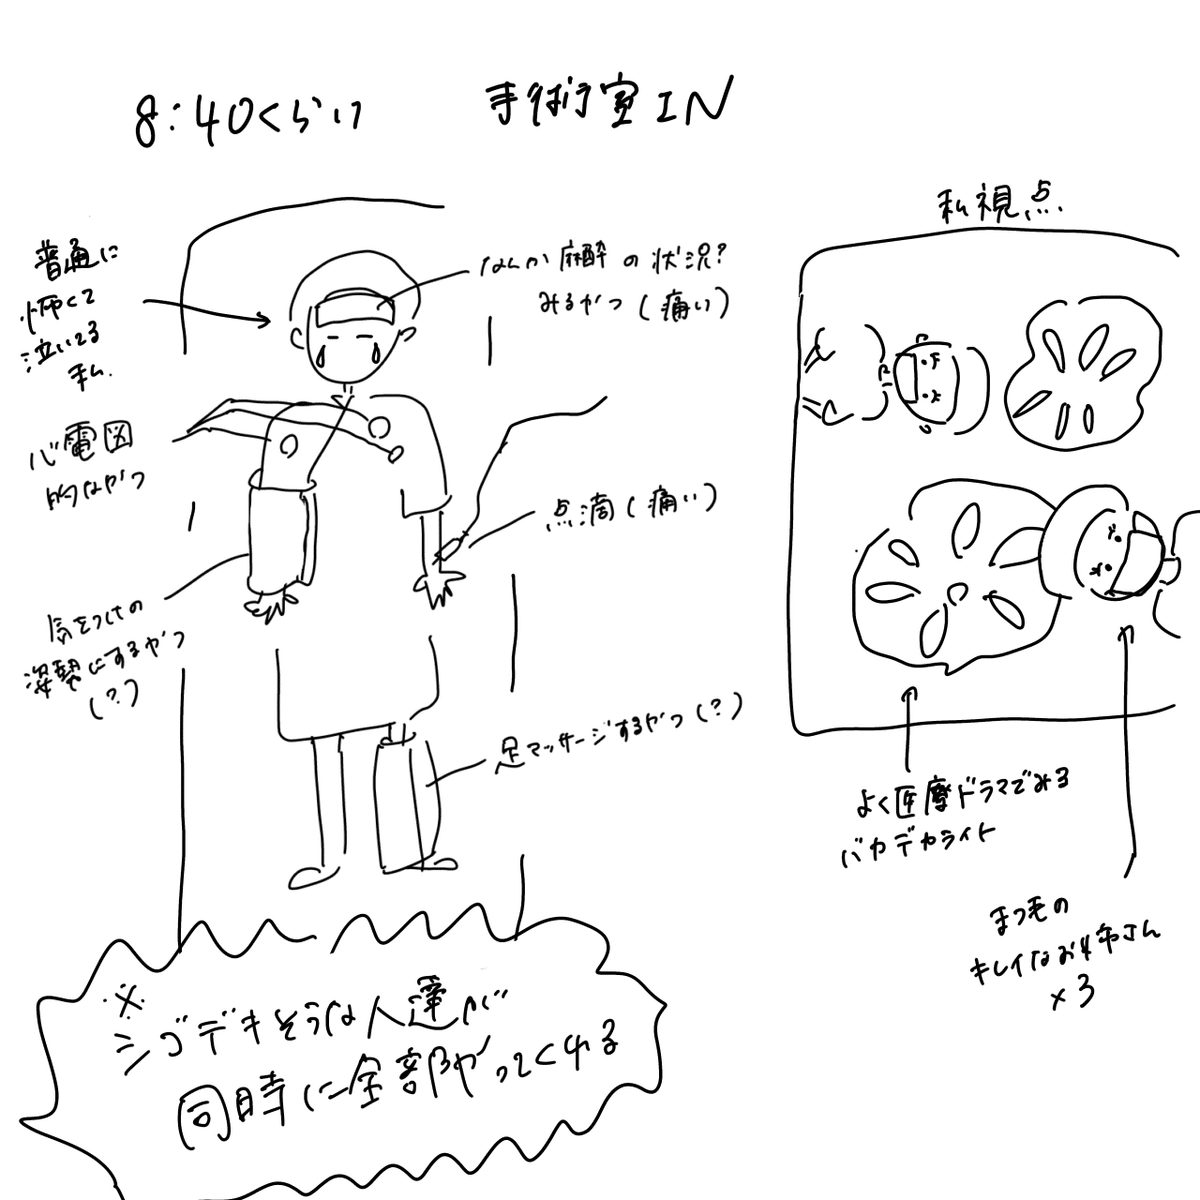 8:40くらい 手術室IN
普通に
怖くて
泣いてる
私
なんか麻酔の状況?
みるやつ(痛い)
心電図
的なやつ
点滴(痛い)
気をつけの
姿勢にするやつ
(?)
足マッサージするやつ(?)
※
シゴデキそうな人達が
同時に全部やってくれる
私視点
よく医療ドラマでみる
バカデカライト
まつ毛の
キレイなお姉さん
×3